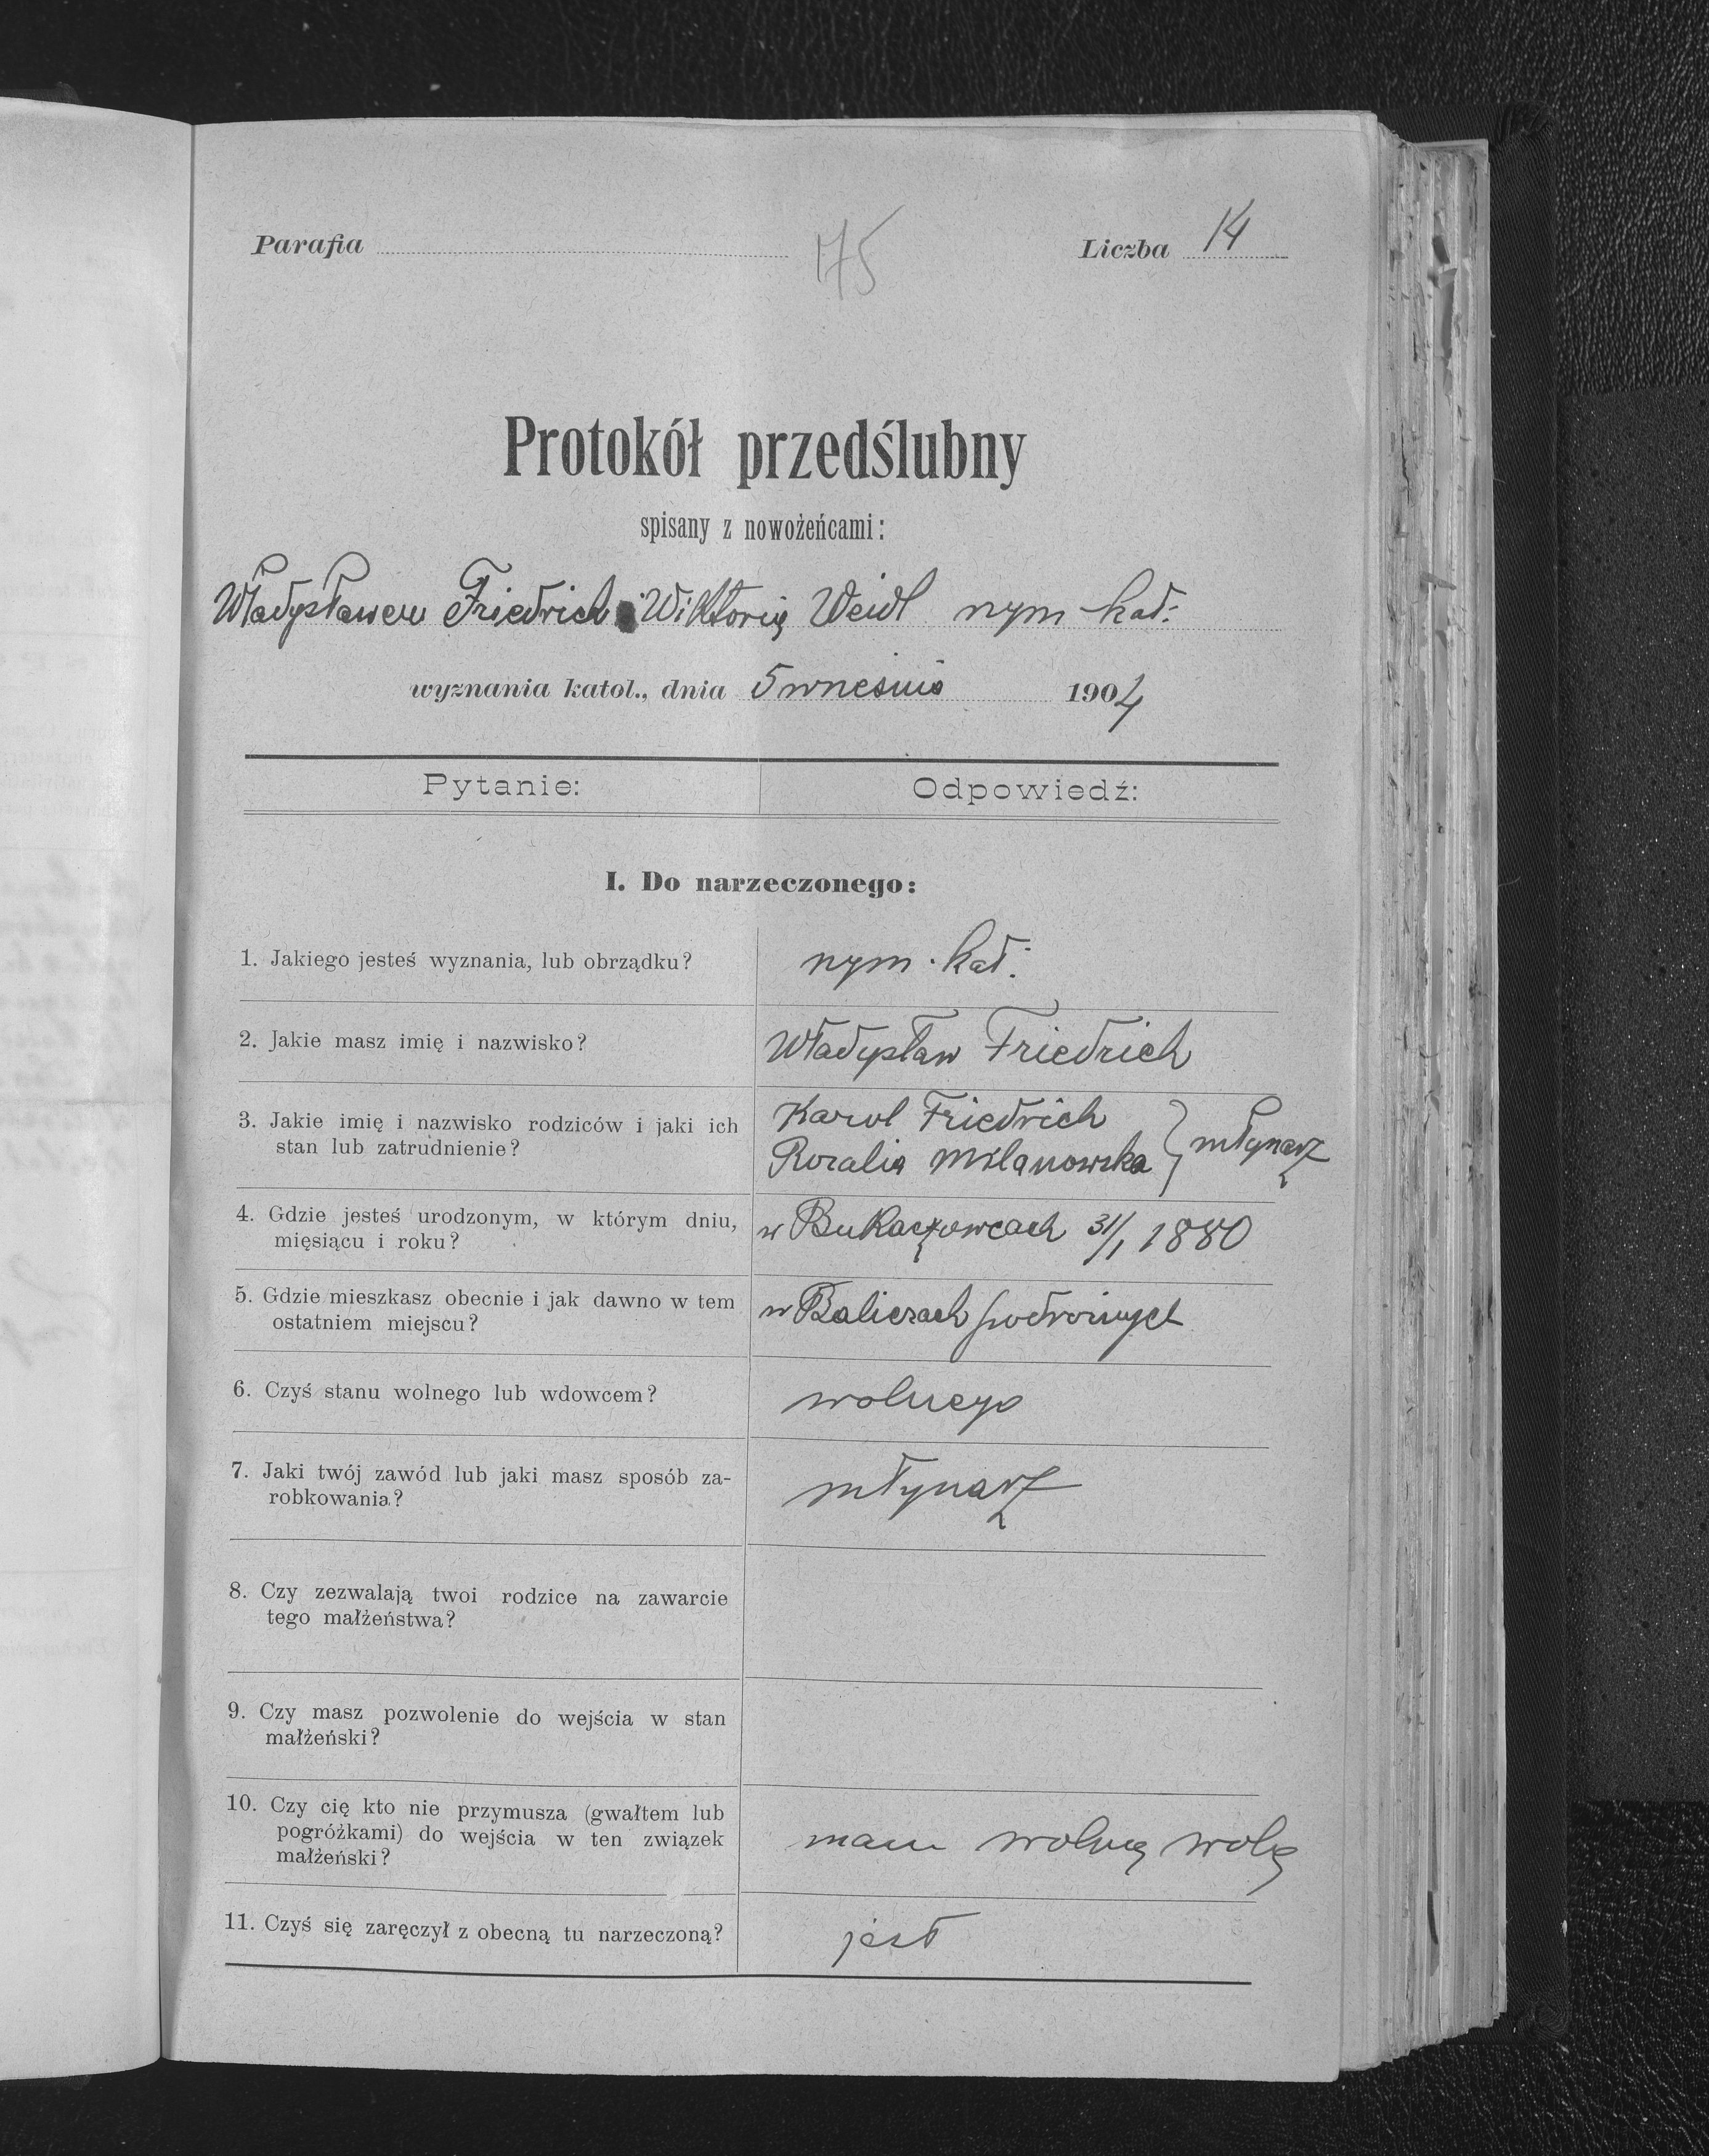 Parafia
175
Liczba 14
Protokół przedślubny
spisany z nowożeńcami:
Władysławem Friedrich i Wiktorią Weidl rzym kat:
wyznania katol., dnia 5 września 1904
Pytanie:
Odpowiedź:
I. Do narzeczonego:
1. Jakiego jesteś wyznania, lub obrządku?
rzym. kat:
2. Jakie masz imię i nazwisko?
Władysław Friedrich
3. Jakie imię i nazwisko rodziców i jaki ich
stan lub zatrudnienie?
Karol Friedrich
Rozalia Milanowska } młynarz
4. Gdzie jesteś urodzonym, w którym dniu,
mięsiącu i roku?
w Bukaczowcach 31/1 1880
5. Gdzie mieszkasz obecnie i jak dawno w tem
ostatniem miejscu?
w Baliczach podróżnych
6. Czyś stanu wolnego lub wdowcem?
wolnego
7. Jaki twój zawód lub jaki masz sposób za-
robkowania?
młynarz
8. Czy zezwalają twoi rodzice na zawarcie
tego małżeństwa?
9. Czy masz pozwolenie do wejścia w stan
małżeński?
10. Czy cię kto nie przymusza (gwałtem lub
pogróżkami) do wejścia w ten związek
małżeński?
mam wolną wolę
11. Czyś się zaręczył z obecną tu narzeczoną?
jest